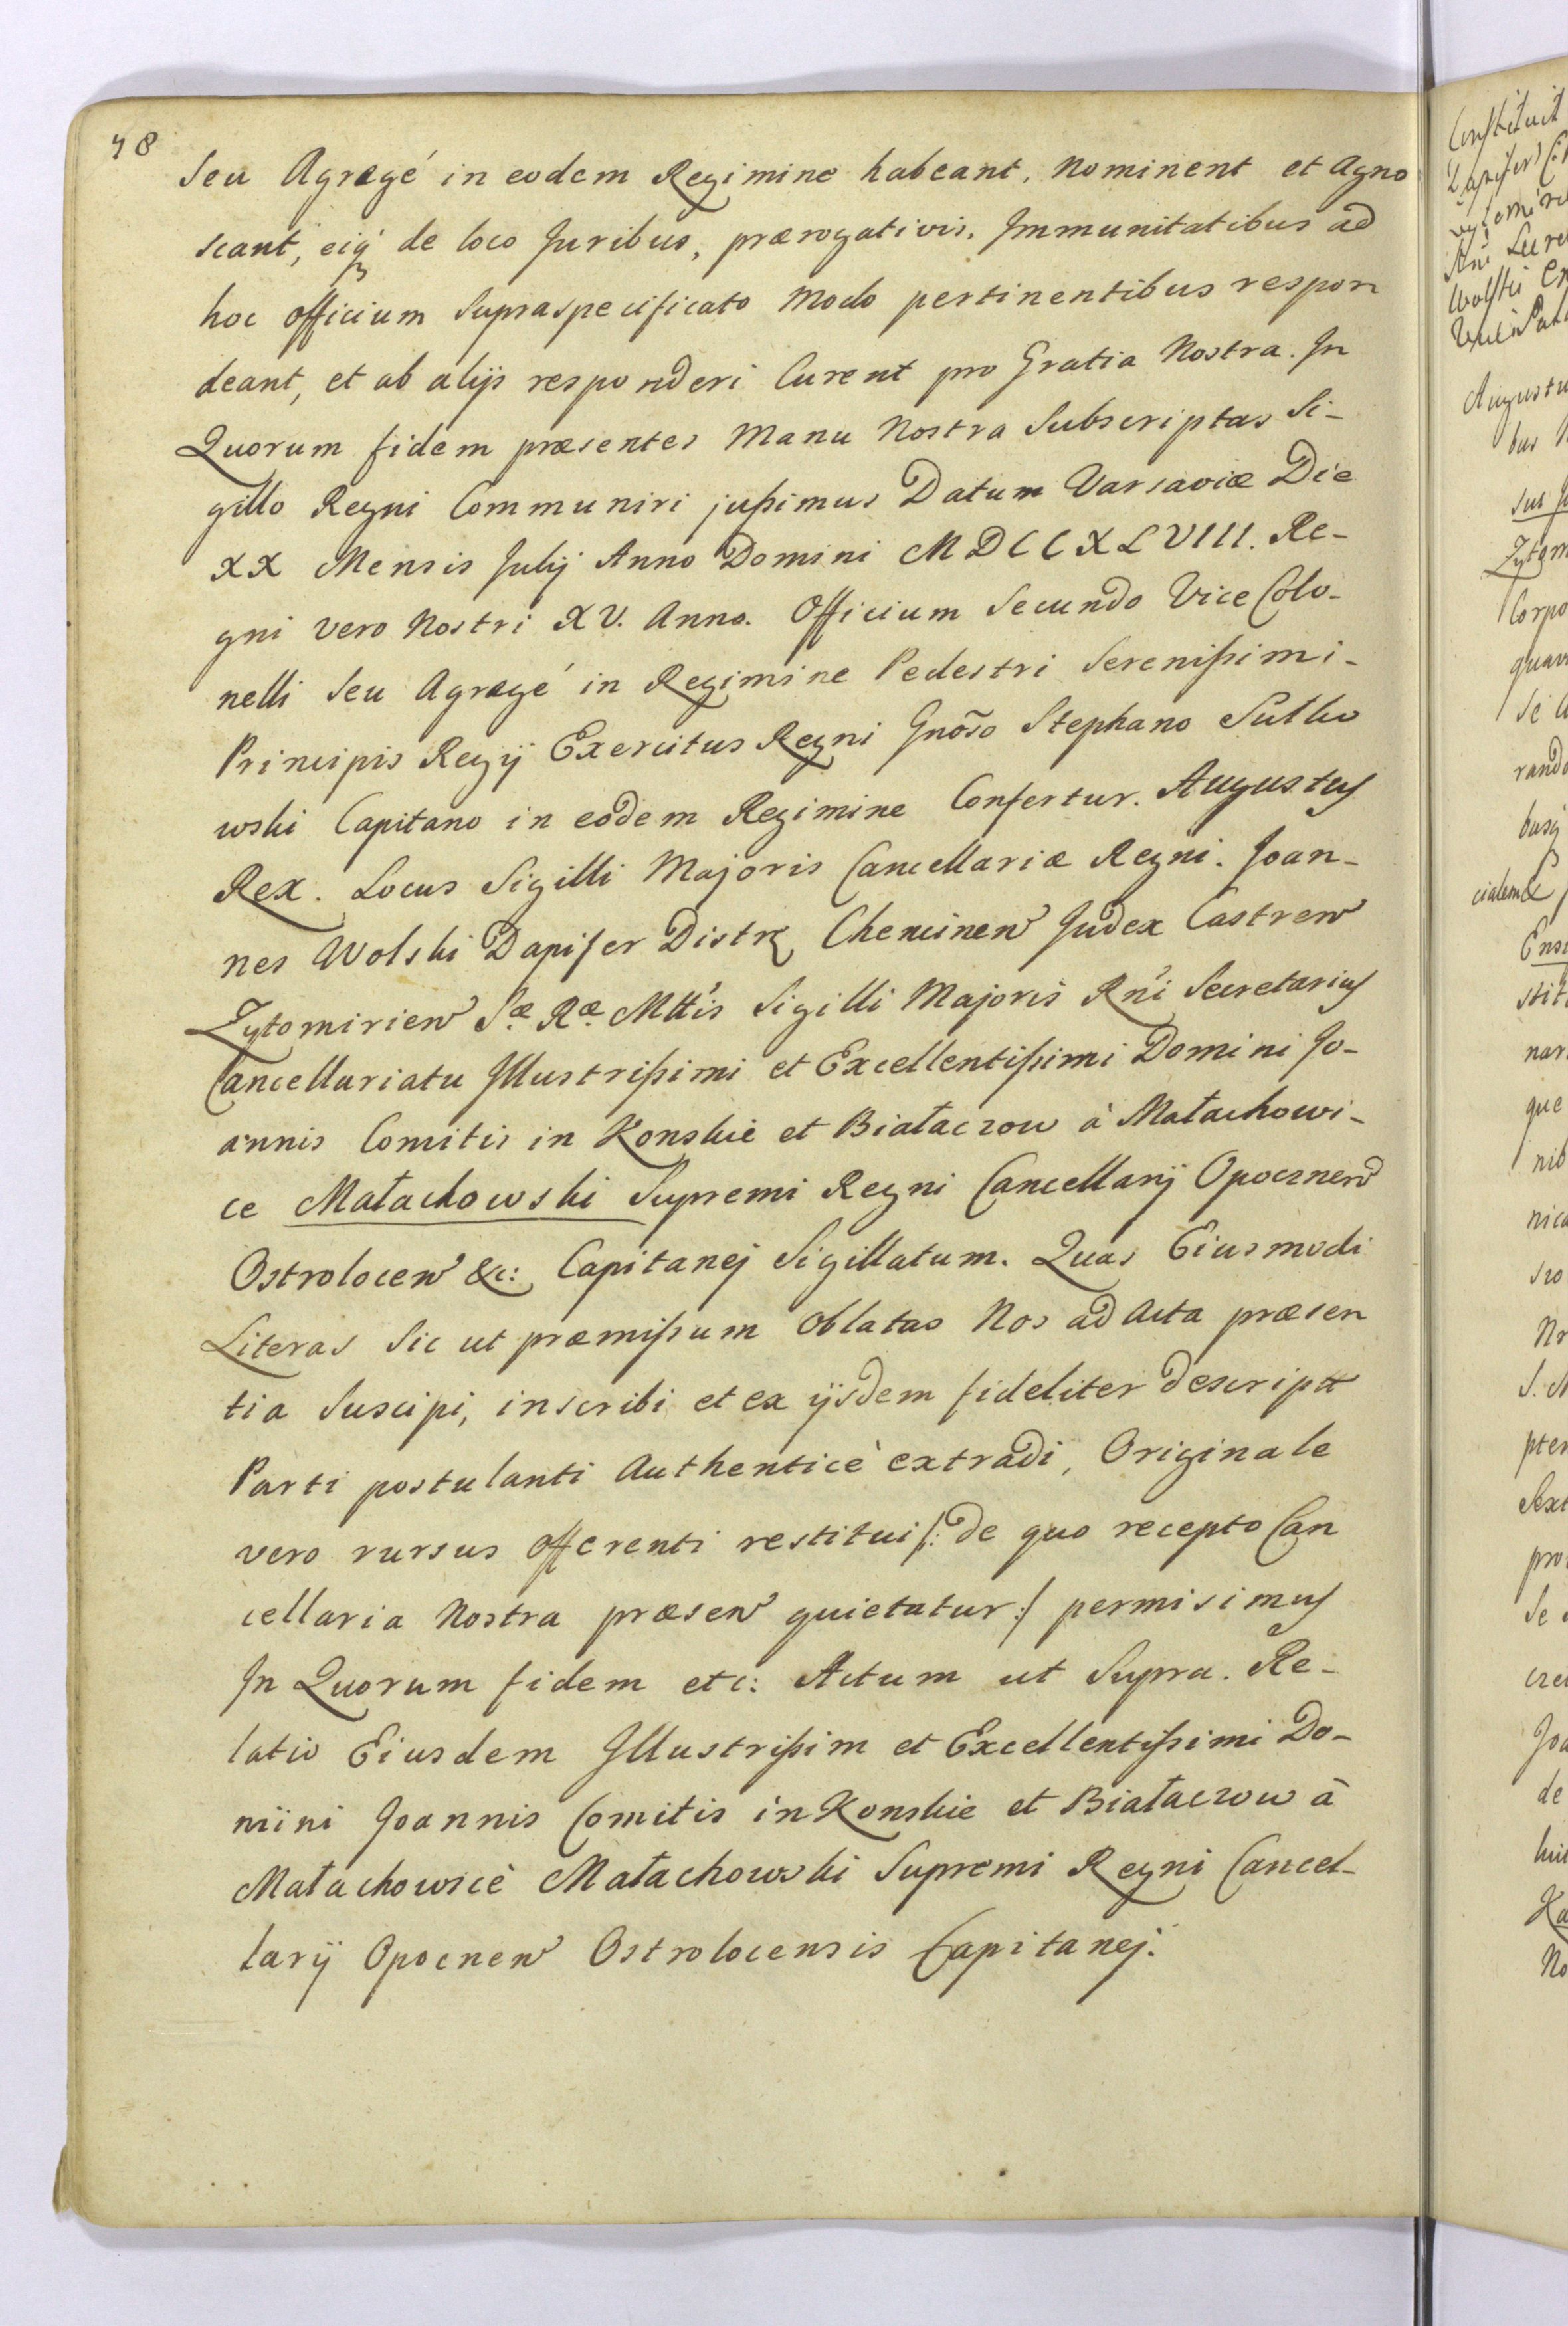 48
Seu Agregé in eodem Regimine habeant, Nominent et Agno
scant, eiq́ de loco Juribus, prærogativis, Immunitatibus ad
hoc officium Supraspecificato Modo pertinentibus respon
deant, et ab alijs responderi Curent pro Gratia Nostra. In
Quorum fidem præsentes Manu Nostra Subscriptas Si-
gillo Regni Communiri jußimus Datum Varsaviæ Die
XX Mensis Julij Anno Domini MDCCXLVIII. Re-
gni vero Nostri XV. Anno. Officium Secundo Vice Colo-
nelli Seu Agregé in Regimine Pedestri Serenißimi-
Principis Regij Exercitus Regni Gnõso Stephano Sutko
wski Capitano in eodem Regimine Confertur. Augustus
Rex. Locus Sigilli Majoris Cancellariæ Regni. Joan-
nes Wolski Dapifer Distr Chencinen Judex Castren
Zytomirien Sæ Ræ Mttis Sigilli Majoris Rni Secretarius
Cancellariatu Illustrißimi et Excellentißimi Domini Jo-
annis Comitis in Konskie et Białaczow à Małachowi-
ce Małachowski Supremi Regni Cancellarij Opocznen
Ostrolocen &c: Capitanej Sigillatum. Quas Eiusmodi
Literas Sic ut præmißum oblatas Nos ad Acta præsen
tia Suscipi, inscribi et ex ijsdem fideliter descriptt
Parti postulanti Authenticè extradi, Originale
vero rursus offerenti restitui /: de quo recepto Can
cellaria Nostra præsen quietatur :/ permisimus
In Quorum fidem etc: Actum ut Supra. Re-
latio Eiusdem Illustrißim et Excellentißimi Do-
mini Joannis Comitis in Konskie et Białaczow à
Małachowicè Małachowski Supremi Regni Cancel-
larij Opocnen Ostrolocensis Capitanej.